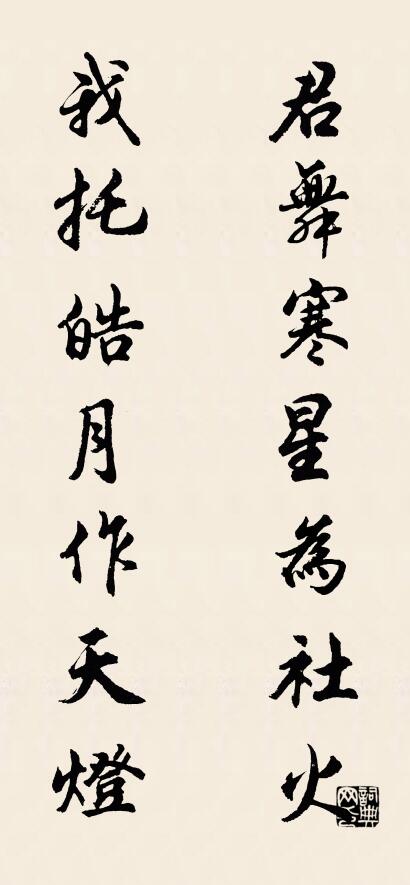 君舞寒星為社火
我托皓月作天燈
詞典網